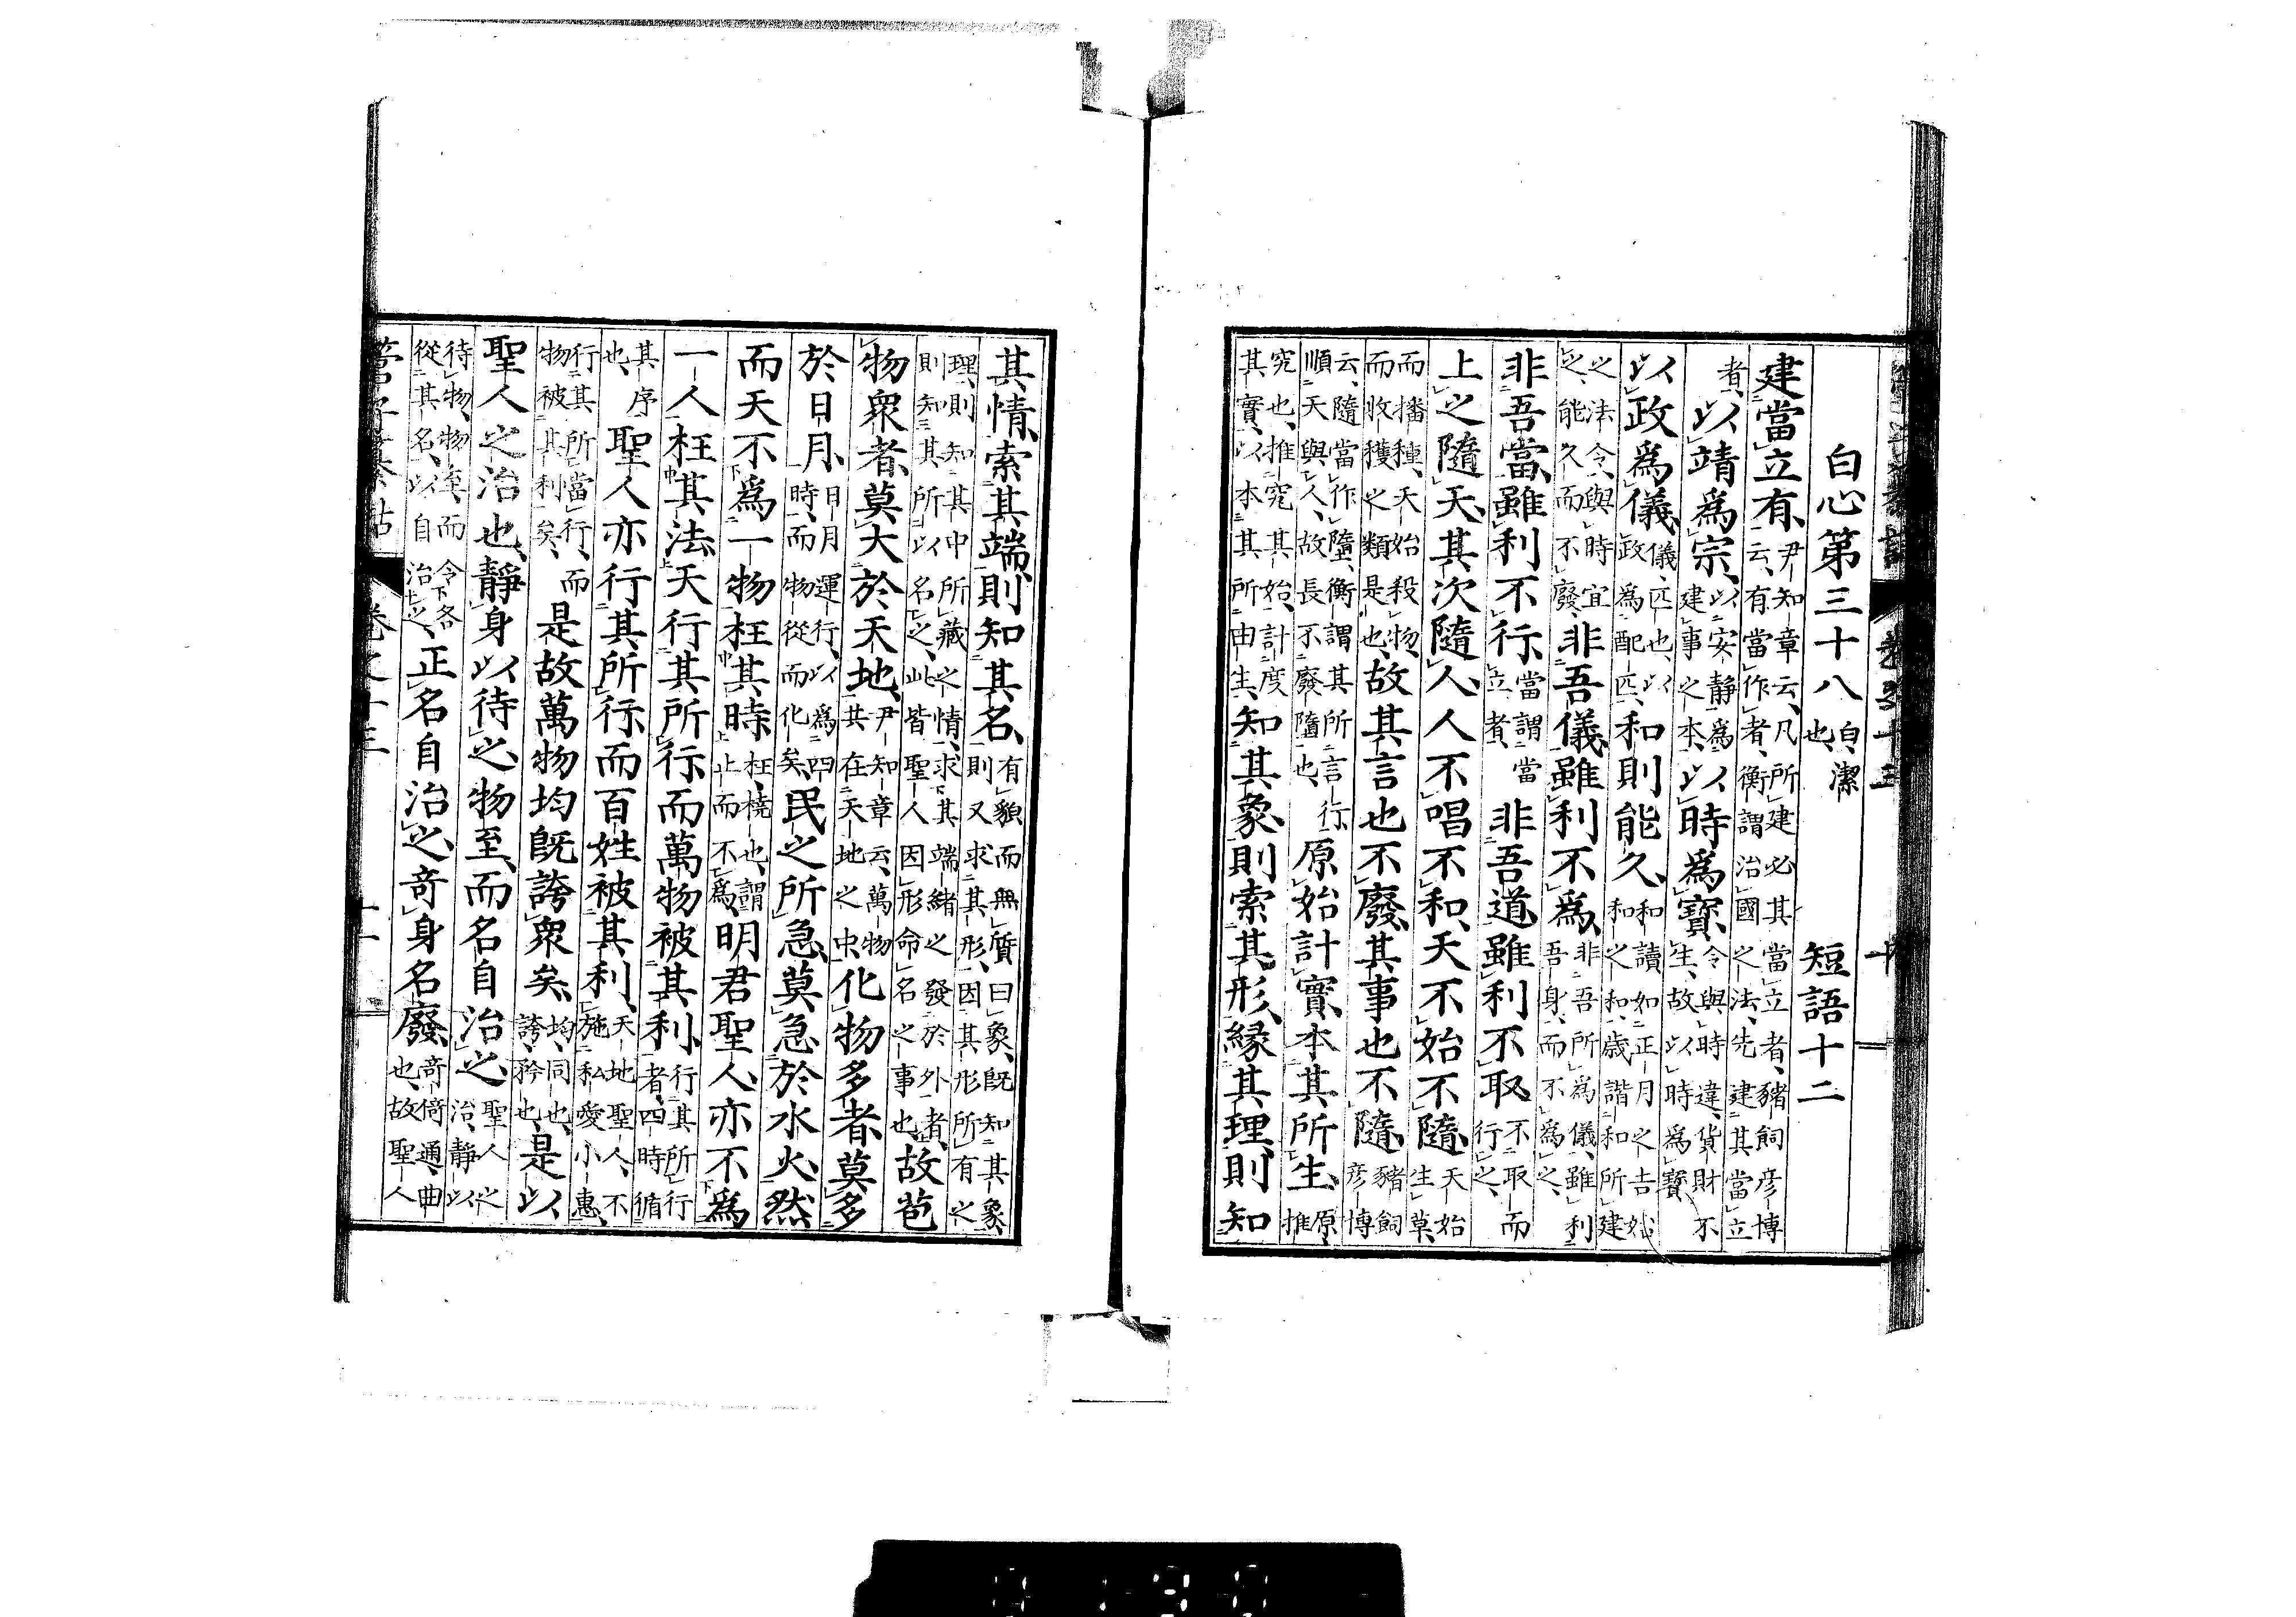 白心第三十八 白、潔也、 短語十二
建當立有、尹知章云、凡所建必其當立者、豬飼彦博云、有當作者、衡謂治國之法、先建其當立
者、以靖爲宗、以安靜爲建事之本、以時爲寶、令與時違、貨財不生、故以時爲寶、
以政爲儀、儀、匹也、以政爲配匹、和則能久、和讀如正月之吉始和之和、歲諧和所建
之法令、與時宜之、能久而不廢、非吾儀、雖利不爲、非吾所爲儀、雖利吾身、而不爲之、
非吾當、雖利不行、當謂當立者、非吾道雖利不取、不取而行之、
上之隨天、其次隨人、人不唱不和、天不始不隨、天始生草、
而播種、天始殺物、而收穫之類是也、故其言也不廢、其事也不隨、豬飼彦博
云、隨當作墮、衡謂其所言行、順天與人、故長不廢墮也、原始計實、本其所生、原、推
究也、推究其始、計度其實、以本其所由生、知其象、則索其形、緣其理、則知
其情、索其端、則知其名、有貌而無質曰象、既知其象、則又求其形、因其形所有之
理、則知其中所藏之情、求其端緒之發於外者、則知其所以名之、此皆聖人因形命名之事也、故苞
物衆者、莫大於天地、尹知章云、萬物其在天地之中、化物多者、莫多
於日月、日月運行、以爲四時、而物從而化矣、民之所急、莫急於水火、然
而天不爲一物枉其時、枉、橈也、謂止而不爲、明君聖人、亦不爲
一人枉其法、天行其所行而萬物被其利、行其所行者、四時循
其序也、聖人亦行其所行而百姓被其利、天地聖人、不施私愛小惠、
行其所當行、而物被其利矣、是故萬物均旣誇衆矣、均、同也、誇、矜也、是以
聖人之治也、靜身以待之、物至、而名自治之、聖人之治、靜以
待物、物至、而令各從其名、以自治之、正名自治之、奇身名廢、奇倚通、曲也、故聖人
管子纂詁 卷之十三 十一